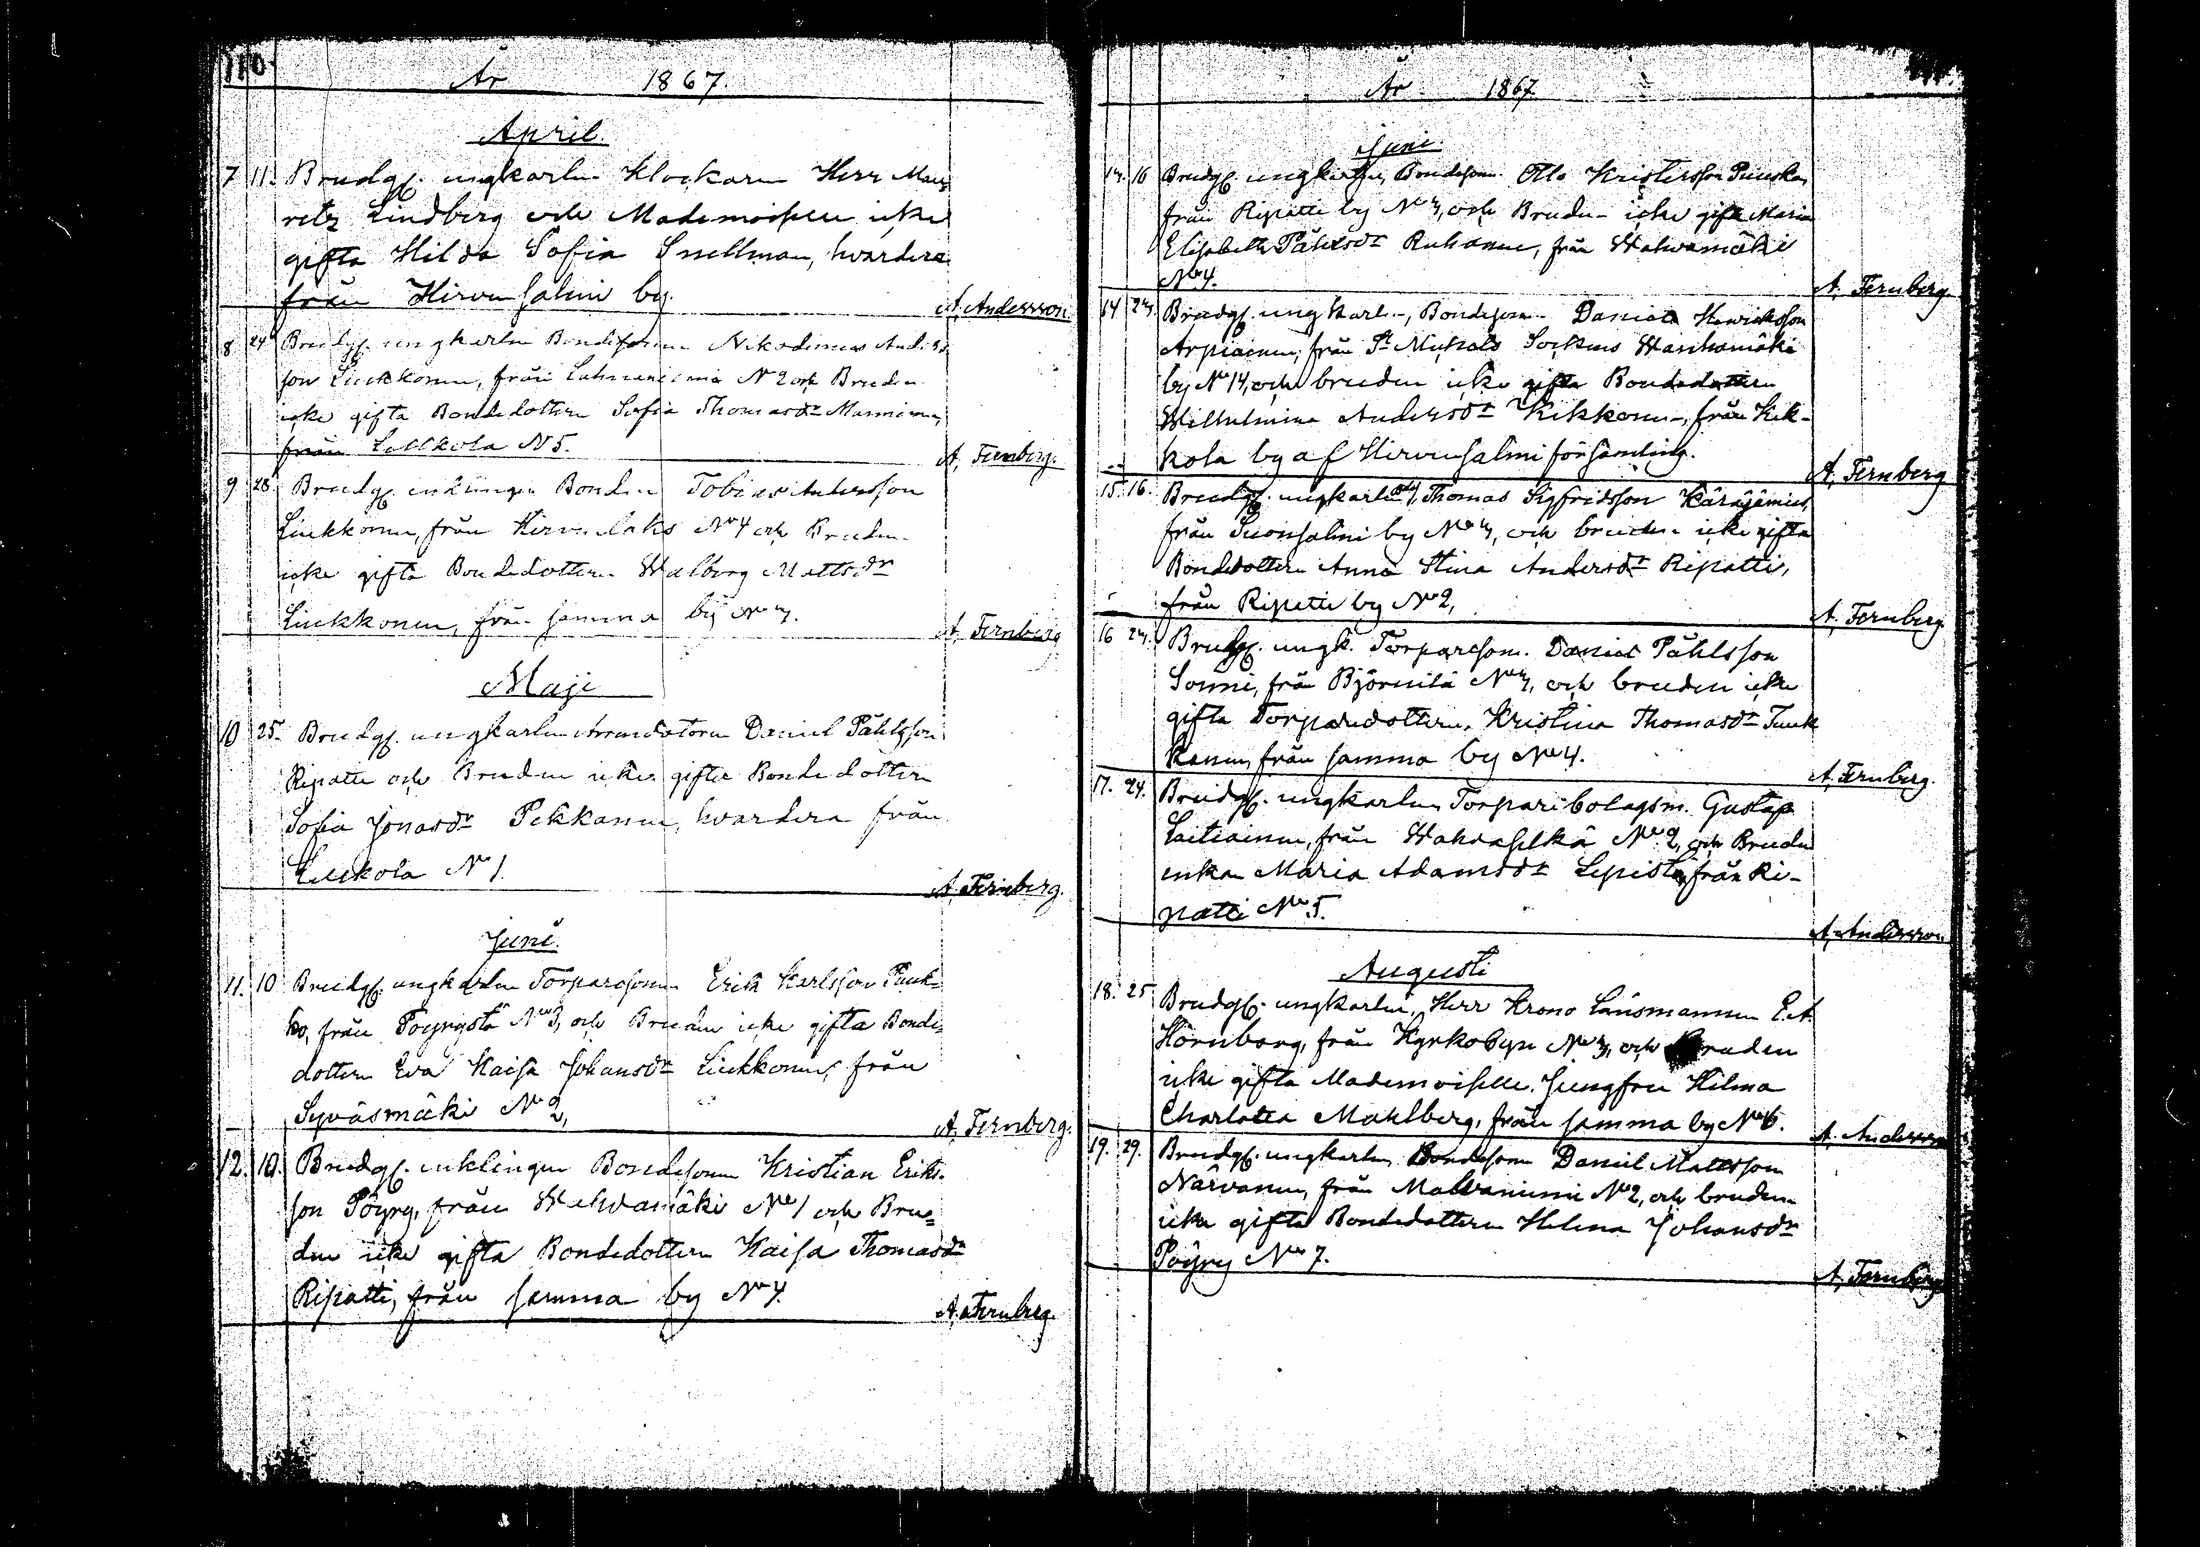 110.
År 1867.
April.
7 11. Brudg. ungkarlen Klockaren Herr Mau-
ritz Lindberg och Mademoisellen icke
gifta Hilda Sofia Snellman, hvardera
från Hirvensalmi by.
A. Andersson
8 24 Brudg. ungkarlen Bondesonen Nikodemus Anders-
son Liukkonen, från Lahnaniemi No 2 och Bruden
icke gifta Bondedottern Sofia Thomasdr Manninen,
från Leukkola N 5.
A, Fernberg.
9 28 Brudg. enklingen Bonden Tobias Andersson
Liukkonen, från Hirvenlaks No 4 och Bruden
icke gifta Bondedottern Walborg Mattsdr
Liukkonen, från samma by No 7.
A, Fernberg
Maji
10 25. Brudg. ungkarlen Arrendatorn Daniel Påhlsson
Ripatti och Bruden icke gifta Bondedottern
Sofia Jonasdr Pekkanen, hvardera från
Leukola No 1.
A. Fernberg.
Juni.
11. 10 Brudg. ungkarlen Torparesonen Erik Karlsson Pauk-
ko, från Pöyrystä No 3, och Bruden icke gifta Bonde-
dottern Eva Kaisa Johansdr Liukkonen, från
Syväsmäki No 2,
A, Fernberg.
12. 10. Brudg. enklingen Bondesonen Kristian Eriks-
son Pöyry, från Wahvamäki No 1 och Bru-
den icke gifta Bondedottern Kaisa Thomasdr
Ripatti, från samma by No 4.
A. Fernberg.
År 1867
Juni.
13. 16 Brudg. ungkarlen, Bondeson Otto Kristersson Puuska
från Ripatti by No 3, och Bruden icke gifta Maria
Elisabeth Påhlsdr Ruhanen, från Wahvamäki
No 4.
A, Fernberg.
14 23. Brudg. ungkarlen, Bondeson Daniel Henriksson
Arpiainen, från St Michels Sockens Wanhamäki
by No 14, och bruden icke gifta Bondedottern
Wilhelmina Andersdr Kekkonen, från Kek-
kola by af Hirvensalmi församling.
A, Fernberg
15. 16. Brudg. ungkarlen Thomas Sigfridsson Käräjämies,
från Suonsalmi by No 3, och bruden icke gifta
Bondedottern Anna Stina Andersdr Ripatti,
från Ripatti by No 2,
A. Fernberg.
16 23. Brudg. ungk. Torpareson. Daniel Påhlsson
Sonni, från Björnilä No 3, och bruden icke
gifta Torparedottern, Kristina Thomasdr Tuuk
kanen, från samma by No 4.
A, Fernberg.
17. 24. Brudg. ungkarlen Torparebolagsm. Gustaf
Laitiainen, från Wahvaselkä No 2, och Bruden
enkan Maria Adamsdr Lepistö, från Ri-
patti No 5.
A. Andersson
Augusti
18. 25 Brudg. ungkarlen, Herr Krono Länsmannen E. A.
Hörnborg, från Kyrkobyn No 3, och Bruden
icke gifta Mademoiselle, Jungfru Hilma
Charlotta Mahlberg, från samma by No 6.
A. Andersson
19. 29. Brudg. ungkarlen Bondeson Daniel Mattsson
Närvänen, från Malvaniemi No 2, och bruden
icke gifta Bondedottern Helena Johansdr
Pöyry No 7.
A, Fernberg